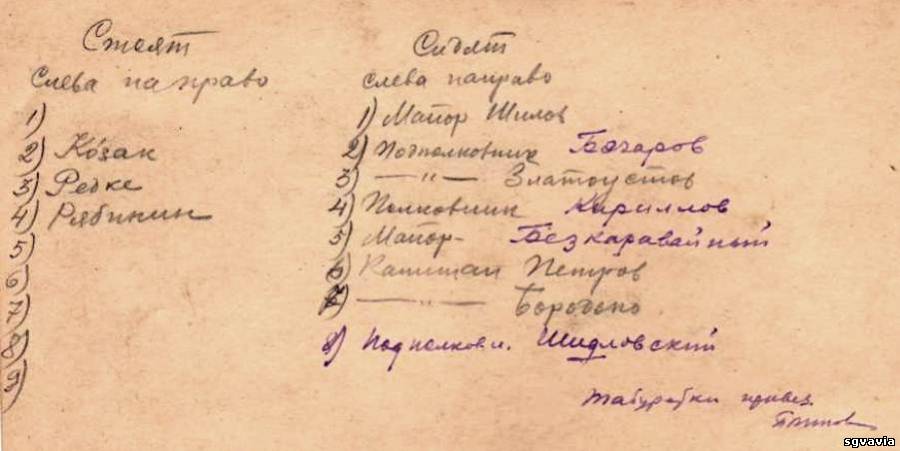 Стоят
слева на право
1)
2) Козак
3) Редке
4) Рябинин
5)
6)
7)
8)
9)
Сидят
слева направо
1) Майор Шилов
2) Подполковник Бочаров
3) —〃— Златоустов
4) Полковник Кириллов
5) Майор- Безкаравайный
6) Капитан Петров
7) —〃— Бородено
8) Подполковн. Шидловский
табуретки привез
sgvavia